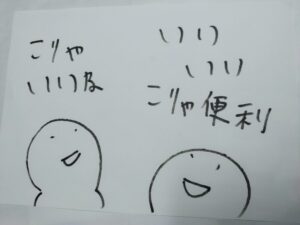 こりゃ
いいな
いい
いい
こりゃ便利